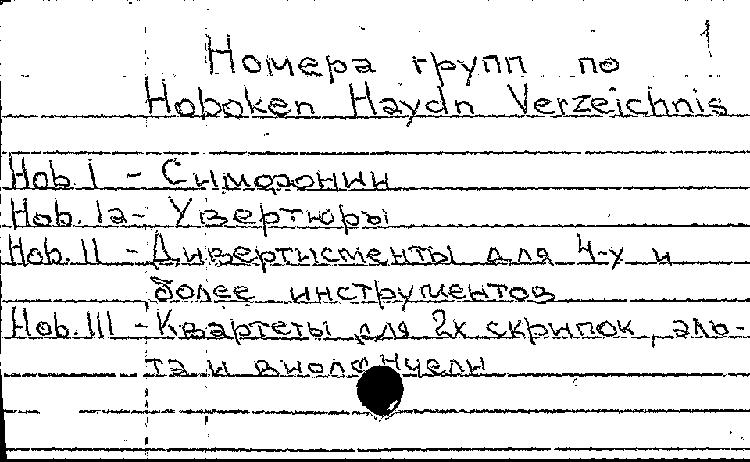 1
Номера групп по
Hoboken Haydn Verzeichnis
Hob. I - Симфонии
Hob. Ia - Увертюры
Hob. II - Дивертисменты для 4-у и
более инструментов
Hob. III - Квартеты для 2х скрипок, аль-
та и виолончели